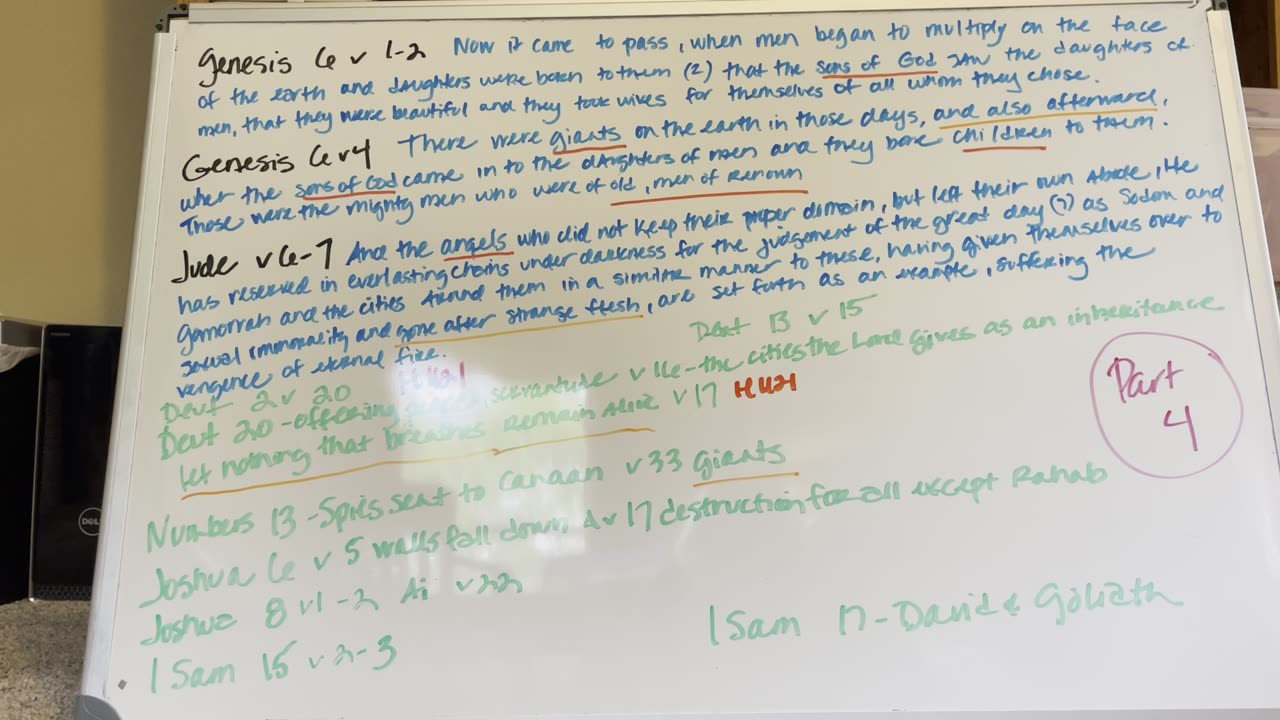 Genesis 6 v 1-2 Now it came to pass, when men began to multiply on the face
of the earth and daughters were born to them (2) that the sons of God saw the daughters of
men, that they were beautiful and they took wives for themselves of all whom they chose.
Genesis 6 v 4 There were giants on the earth in those days, and also afterward,
when the sons of God came in to the daughters of men and they bore children to them.
Those were the mighty men who were of old, men of renown
Jude v 6-7 And the angels who did not keep their proper domain, but left their own abode, He
has reserved in everlasting chains under darkness for the judgement of the great day (7) as Sodom and
Gomorrah and the cities around them in a similar manner to these, having given themselves over to
sexual immorality and gone after strange flesh, are set forth as an example, suffering the
vengence of eternal fire.
Deut 13 v 15
Deut 2 v 20
Deut 20 - offering servantude v 16 - the cities the Lord gives as an inheritance
let nothing that breathes remain alive v 17 H4421
Numbers 13 - Spies sent to Canaan v 33 giants
Joshua 6 v 5 walls fall down & v 17 destruction for all except Rahab
Joshua 8 v 1-2 Ai v 22
1 Sam 15 v 2-3
1 Sam 17 - David & Goliath
Part
4
DELL